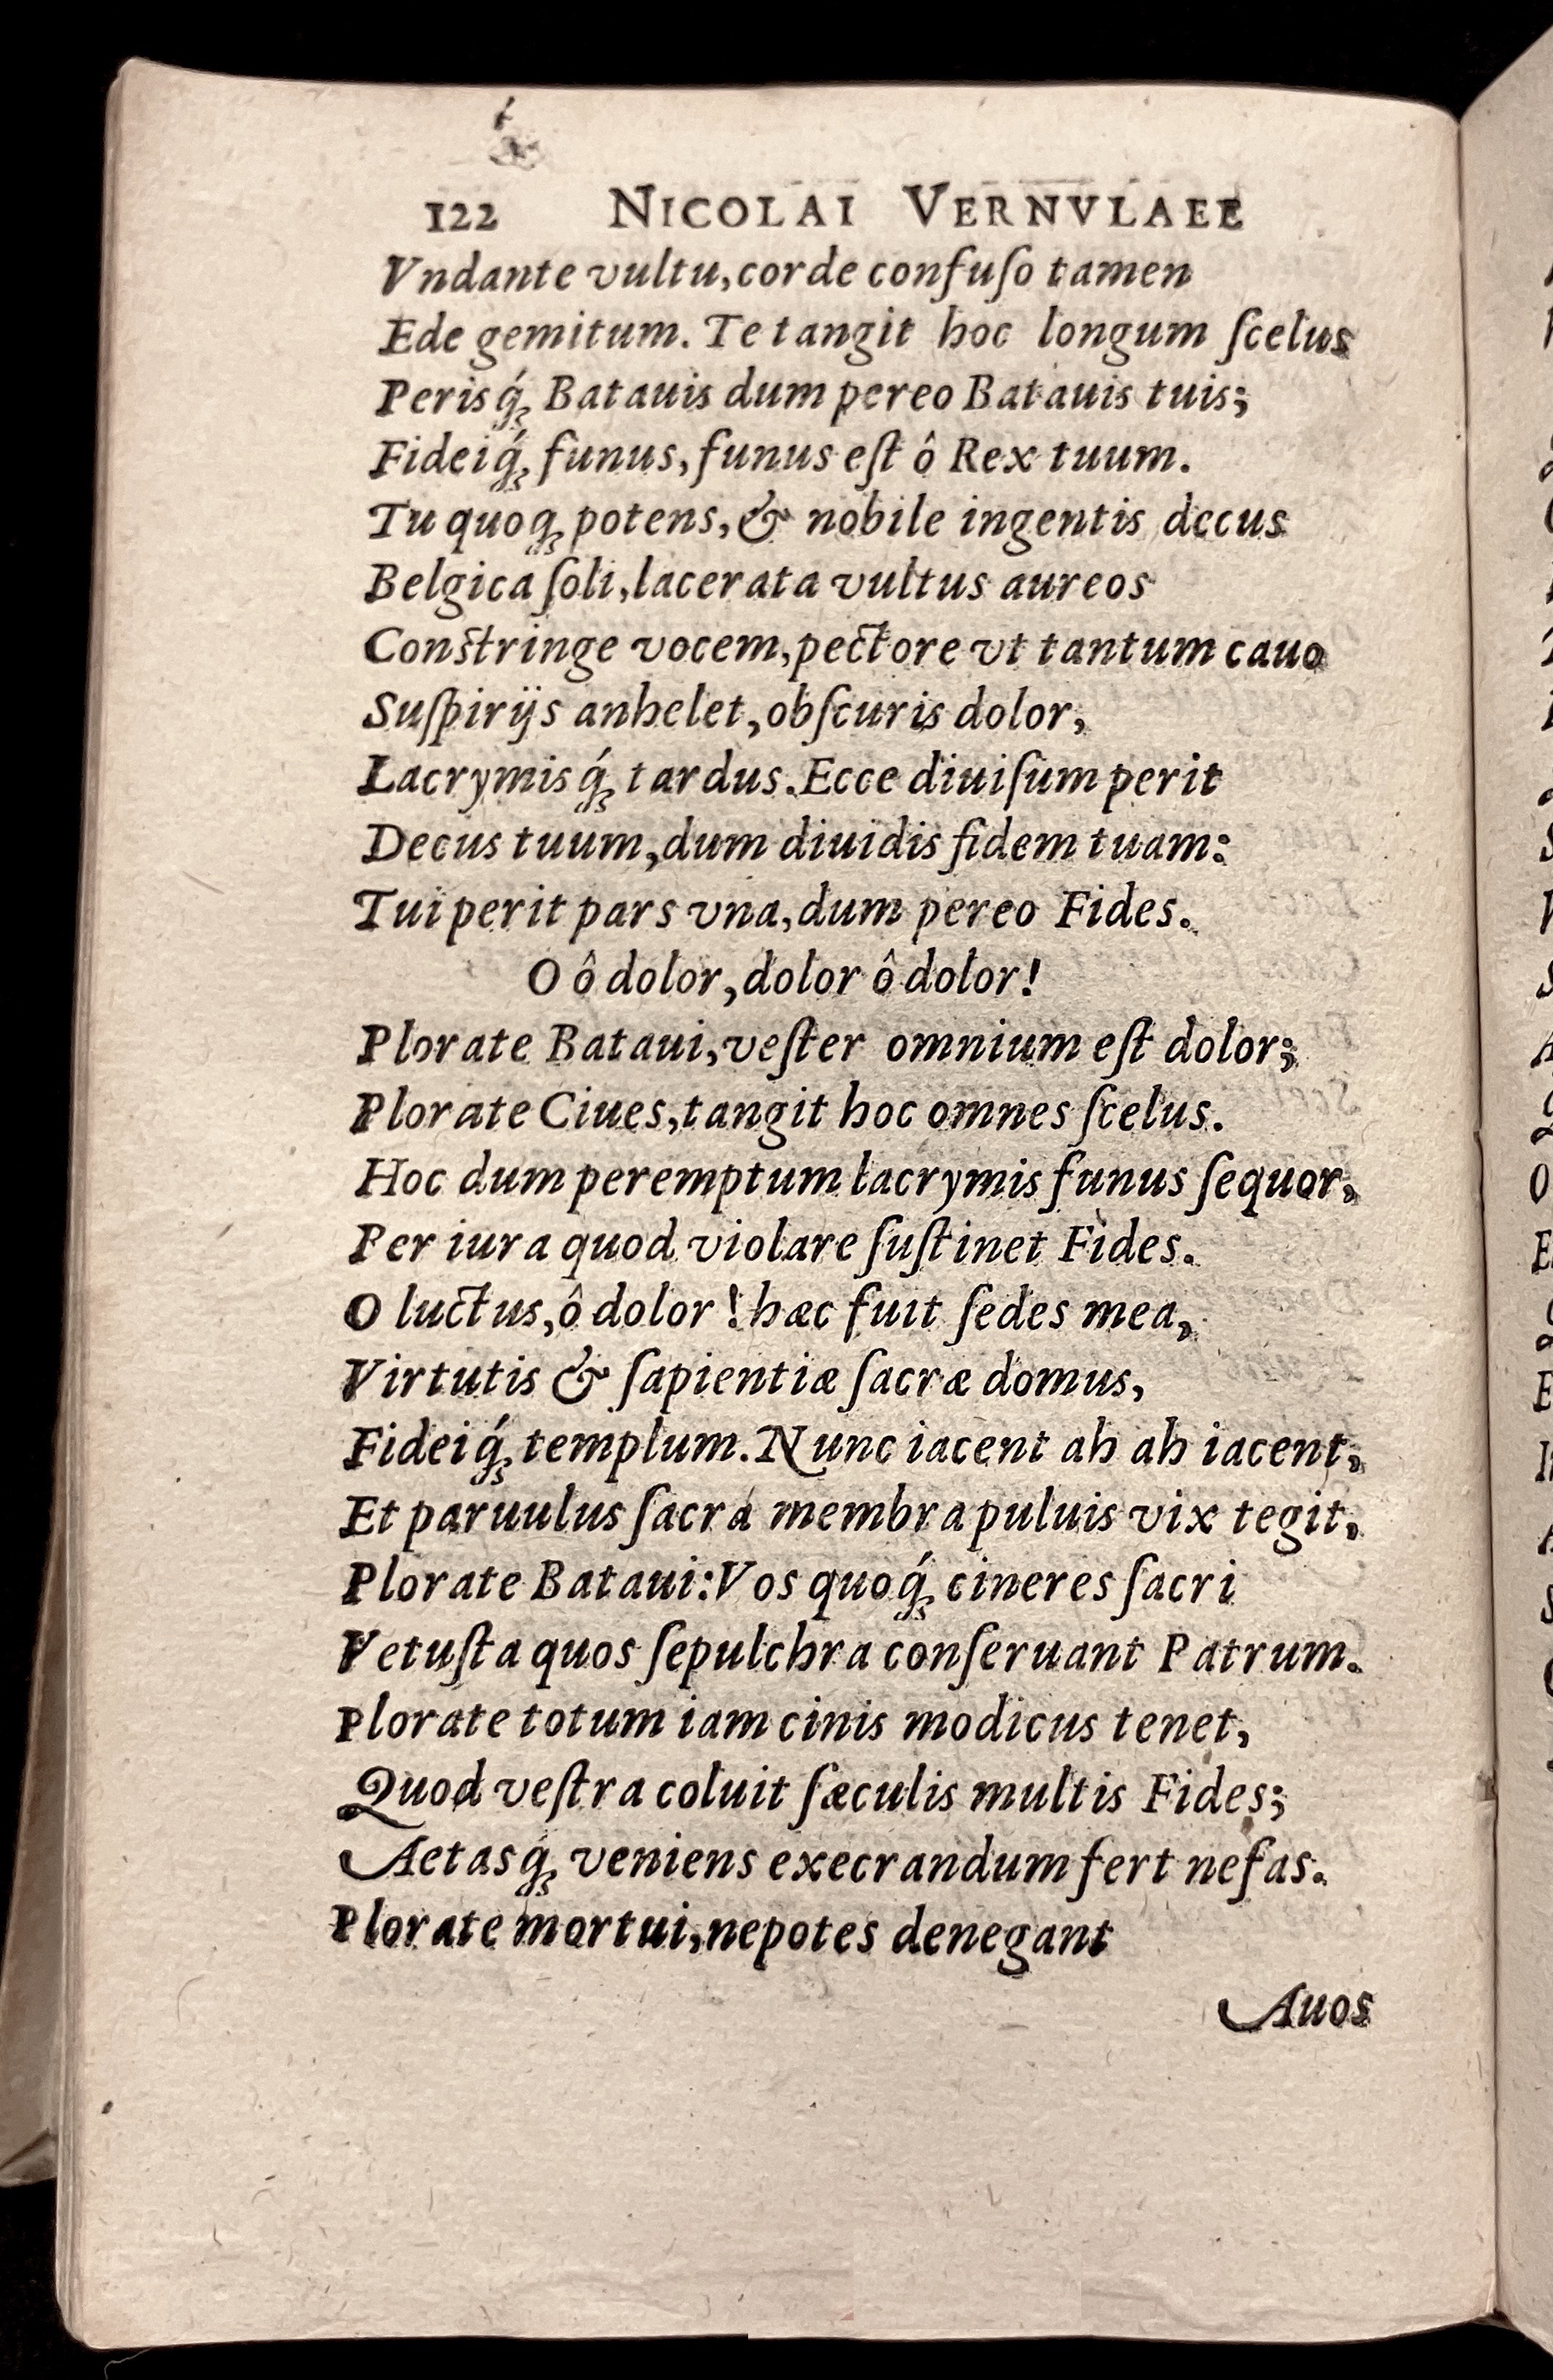 122 NICOLAI VERNVLAEE
Vndante vultu, corde confuſo tamen
Ede gemitum. Te tangit hoc longum ſcelus
Perisq́; Batauis dum pereo Batauis tuis;
Fideiq́; funus, funus eſt ô Rex tuum.
Tu quoq; potens, & nobile ingentis decus
Belgica ſoli, lacerata vultus aureos
Conſtringe vocem, pectore vt tantum cauo
Suſpirijs anhelet, obſcuris dolor,
Lacrymisq́; tardus. Ecce diuiſum perit
Decus tuum, dum diuidis fidem tuam:
Tui perit pars vna, dum pereo Fides.
O ô dolor, dolor ô dolor!
Plorate Bataui, veſter omnium eſt dolor;
Plorate Ciues, tangit hoc omnes ſcelus.
Hoc dum peremptum lacrymis funus ſequor,
Per iura quod violare ſuſtinet Fides.
O luctus, ô dolor! hæc fuit ſedes mea,
Virtutis & ſapientiæ ſacræ domus,
Fideiq́; templum. Nunc iacent ah ah iacent,
Et paruulus ſacra membra puluis vix tegit,
Plorate Bataui: Vos quoq́; cineres ſacri
Vetuſta quos ſepulchra conſeruant Patrum.
Plorate totum iam cinis modicus tenet,
Quod veſtra coluit ſæculis multis Fides;
Aetasq́; veniens execrandum fert nefas.
Plorate mortui, nepotes denegant
Auos